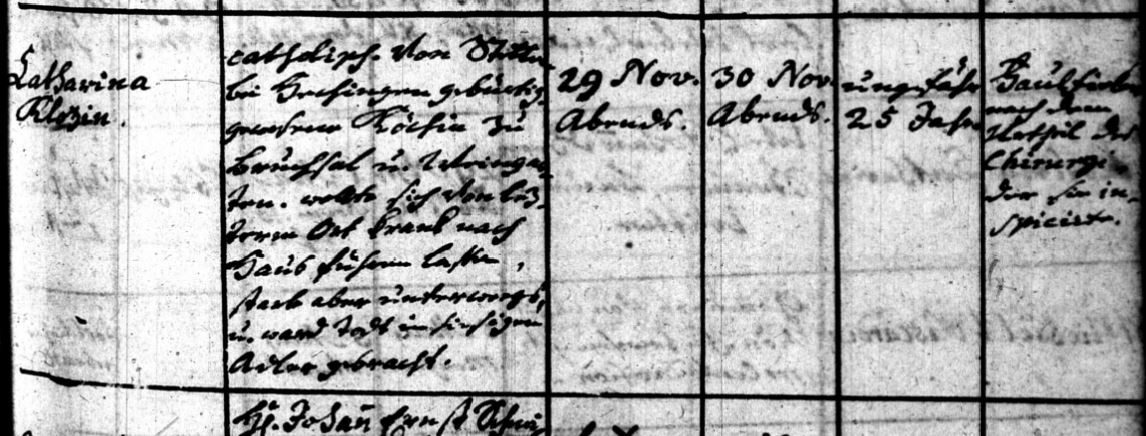 Catharina
Klozin.
catholisch. von Stetten
bei Hechingen gebürtig,
gewesene Köchin zu
Bruchsal u. Weingar¬
ten. wollte sich von lez¬
term Ort krank nach
Haus führen lassen,
starb aber unterwegs,
u. ward todt im hiesigen
Adler gebracht.
29 Nov.
Abends.
30 Nov.
Abends.
ungefähr
25 Jahr
Faulfieber
nach dem
Urtheil des
Chirurgi
der sie in¬
spicirte.
H. Johann Ernst